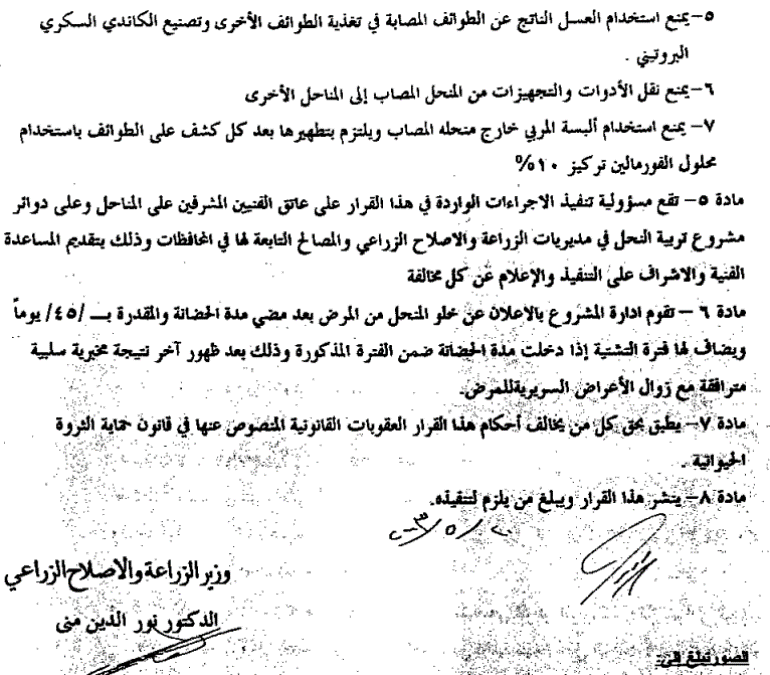 ٥– يمنع استخدام العسل الناتج عن الطوائف المصابة في تغذية الطوائف الأخرى وتصنيع الكاندي السكري
البروتيني .
٦– يمنع نقل الأدوات والتجهيزات من المنحل المصاب إلى المناحل الأخرى
٧– يمنع استخدام ألبسة المربي خارج منحله المصاب ويلتزم بتطهيرها بعد كل كشف على الطوائف باستخدام
محلول الفورمالين تركيز ١٠%
مادة ٥– تقع مسؤولية تنفيذ الاجراءات الواردة في هذا القرار على عاتق الفنيين المشرفين على المناحل وعلى دوائر
مشروع تربية النحل في مديريات الزراعة والاصلاح الزراعي والمصالح التابعة لها في المحافظات وذلك بتقديم المساعدة
الفنية والاشراف على التنفيذ والإعلام عن كل مخالفة
مادة ٦ – تقوم ادارة المشروع بالاعلان عن خلو المنحل من المرض بعد مضي مدة الحضانة والمقدرة بـــ /٤٥/ يوماً
ويضاف لها فترة التشتية إذا دخلت مدة الحضانة ضمن الفترة المذكورة وذلك بعد ظهور آخر نتيجة مخبرية سلبية
مترافقة مع زوال الأعراض السريريةللمرض.
مادة ٧– يطبق بحق كل من يخالف أحكام هذا القرار العقوبات القانونية المنصوص عنها في قانون حماية الثروة
الحيوانية .
مادة ٨– ينشر هذا القرار ويبلغ من يلزم لتنفيذه.
وزير الزراعة والاصلاح الزراعي
الدكتور نور الدين منى
الصور تبلغ الى: